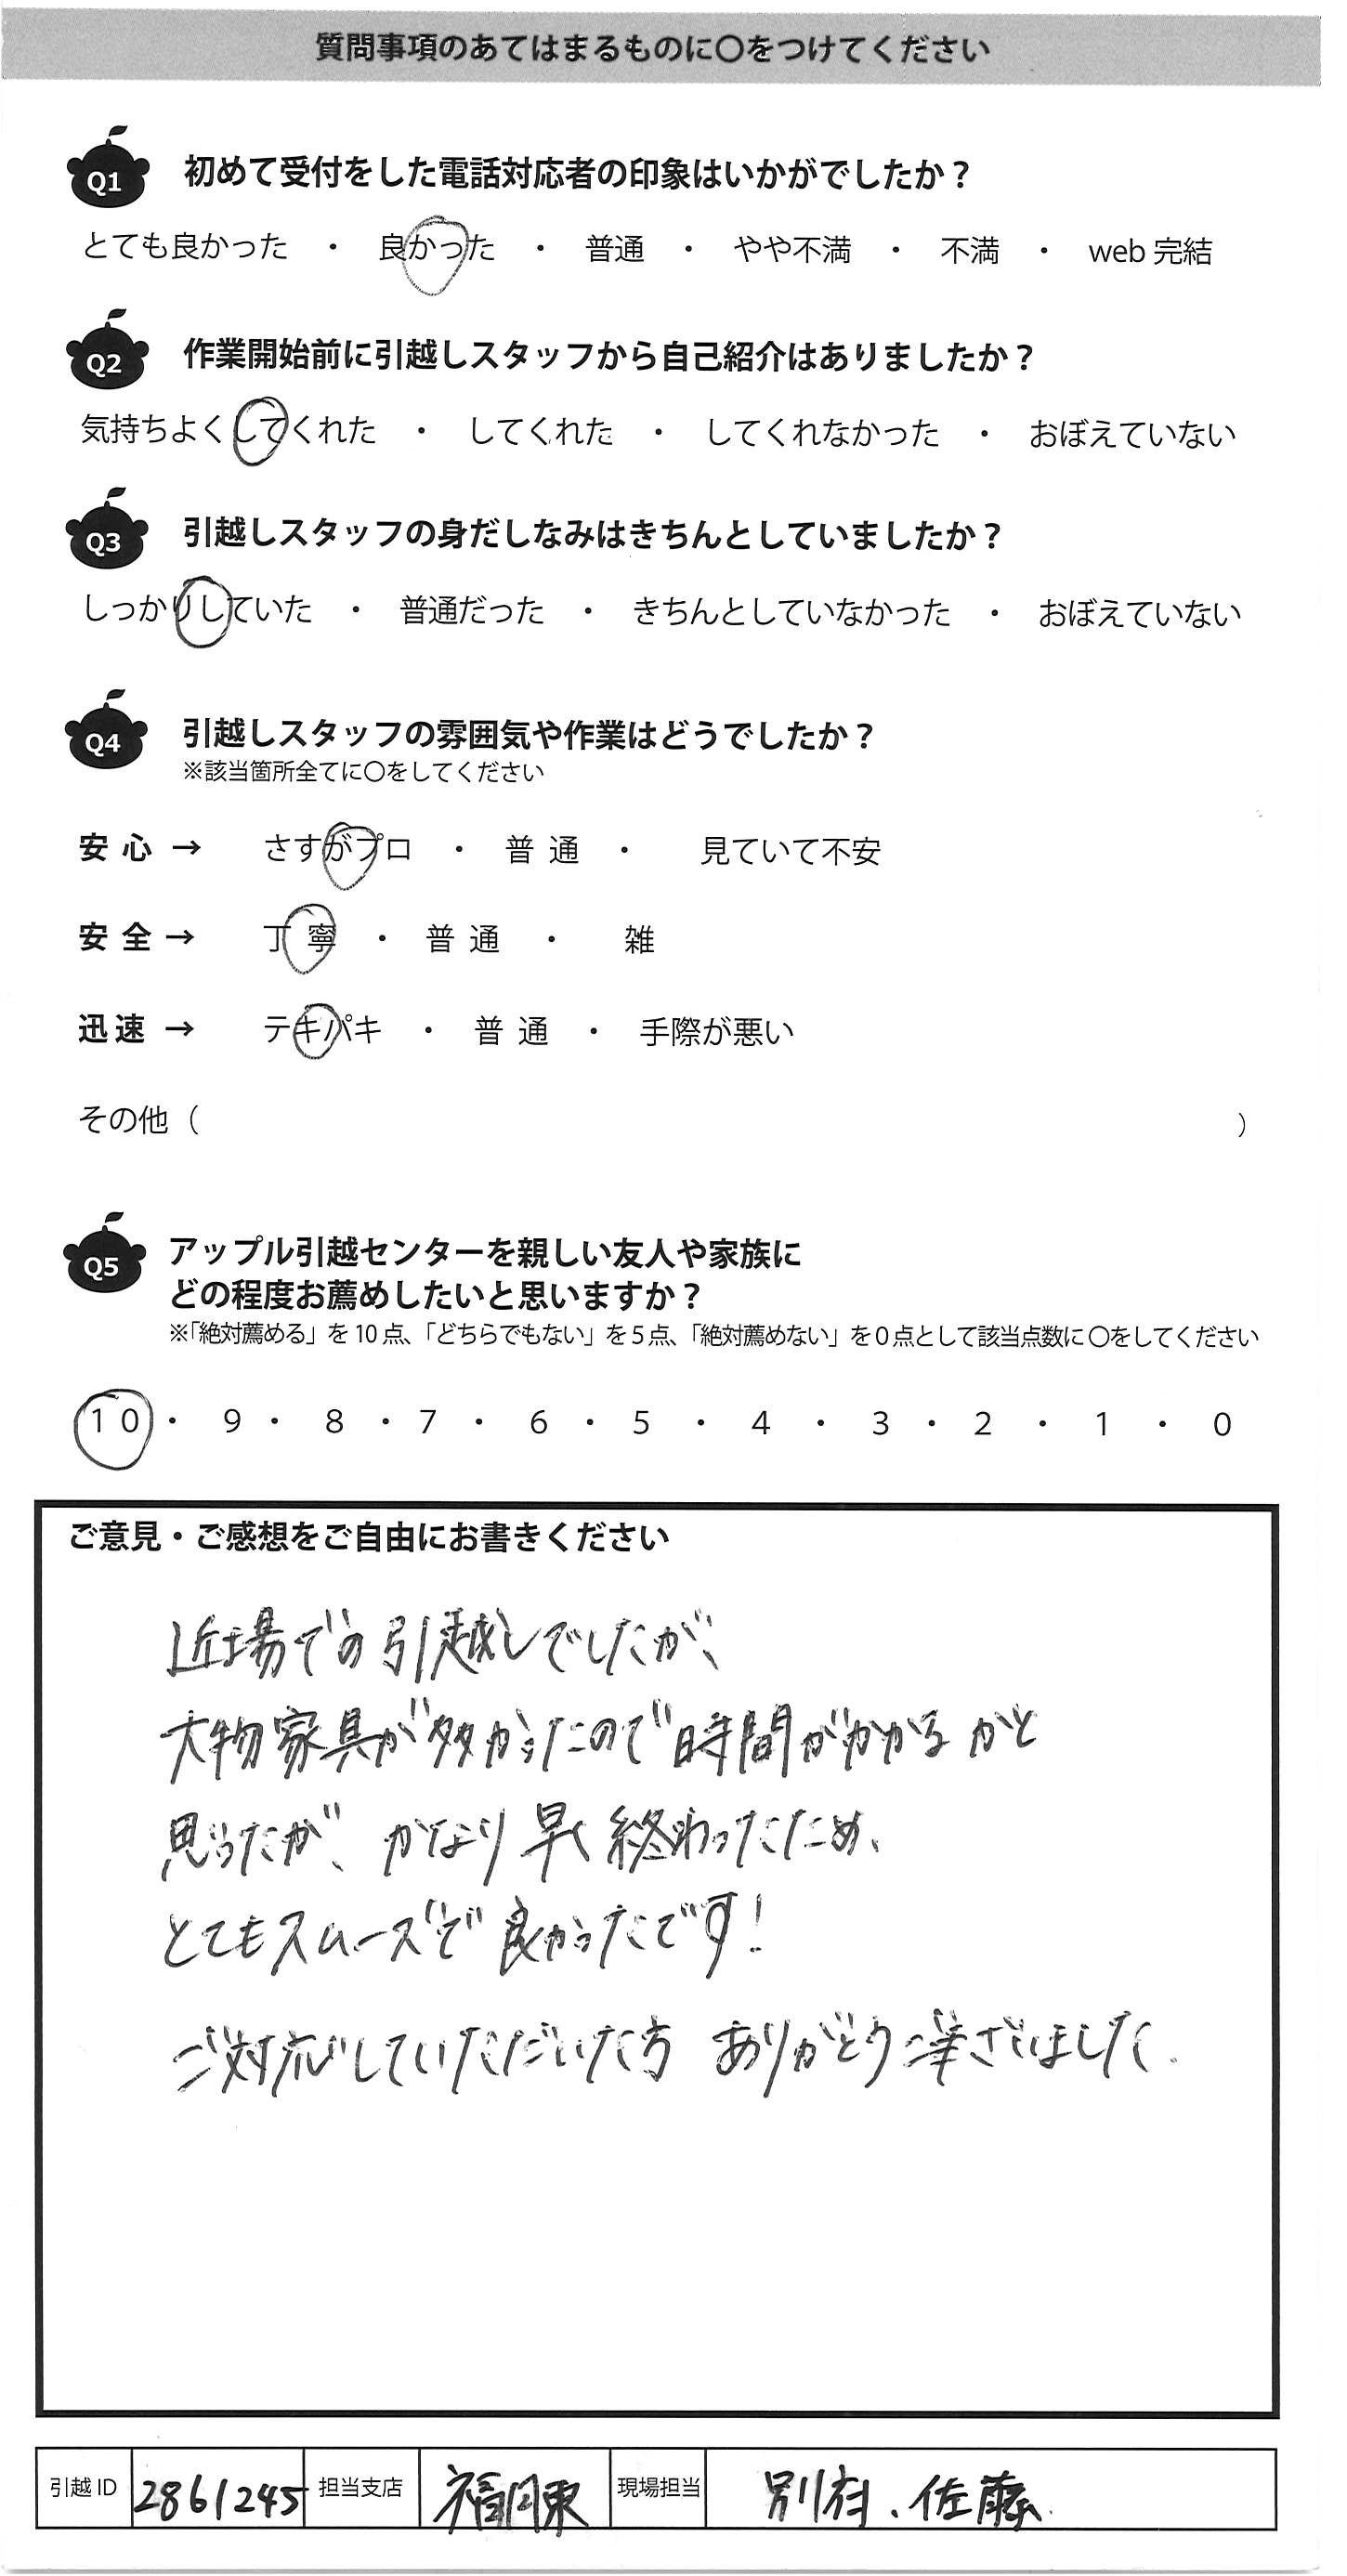 質問事項のあてはまるものに〇をつけてください
Q1 初めて受付をした電話対応者の印象はいかがでしたか？
とても良かった ・ 良かった ・ 普通 ・ やや不満 ・ 不満 ・ web 完結
Q2 作業開始前に引越しスタッフから自己紹介はありましたか？
気持ちよくしてくれた ・ してくれた ・ してくれなかった ・ おぼえていない
Q3 引越しスタッフの身だしなみはきちんとしていましたか？
しっかりしていた ・ 普通だった ・ きちんとしていなかった ・ おぼえていない
Q4 引越しスタッフの雰囲気や作業はどうでしたか？
※該当箇所全てに〇をしてください
安心 → さすがプロ ・ 普通 ・ 見ていて不安
安全 → 丁寧 ・ 普通 ・ 雑
迅速 → テキパキ ・ 普通 ・ 手際が悪い
その他（ ）
Q5 アップル引越センターを親しい友人や家族に
どの程度お薦めしたいと思いますか？
※「絶対薦める」を10点、「どちらでもない」を5点、「絶対薦めない」を0点として該当点数に〇をしてください
10 ・ 9 ・ 8 ・ 7 ・ 6 ・ 5 ・ 4 ・ 3 ・ 2 ・ 1 ・ 0
ご意見・ご感想をご自由にお書きください
近場での引越しでしたが、
大物家具が多かったので時間がかかるかと
思ったが、かなり早く終わったため、
とてもスムーズで良かったです！
ご対応していただいた方 ありがとうございました.
引越ID 2861245 担当支店 福岡東 現場担当 別府、佐藤